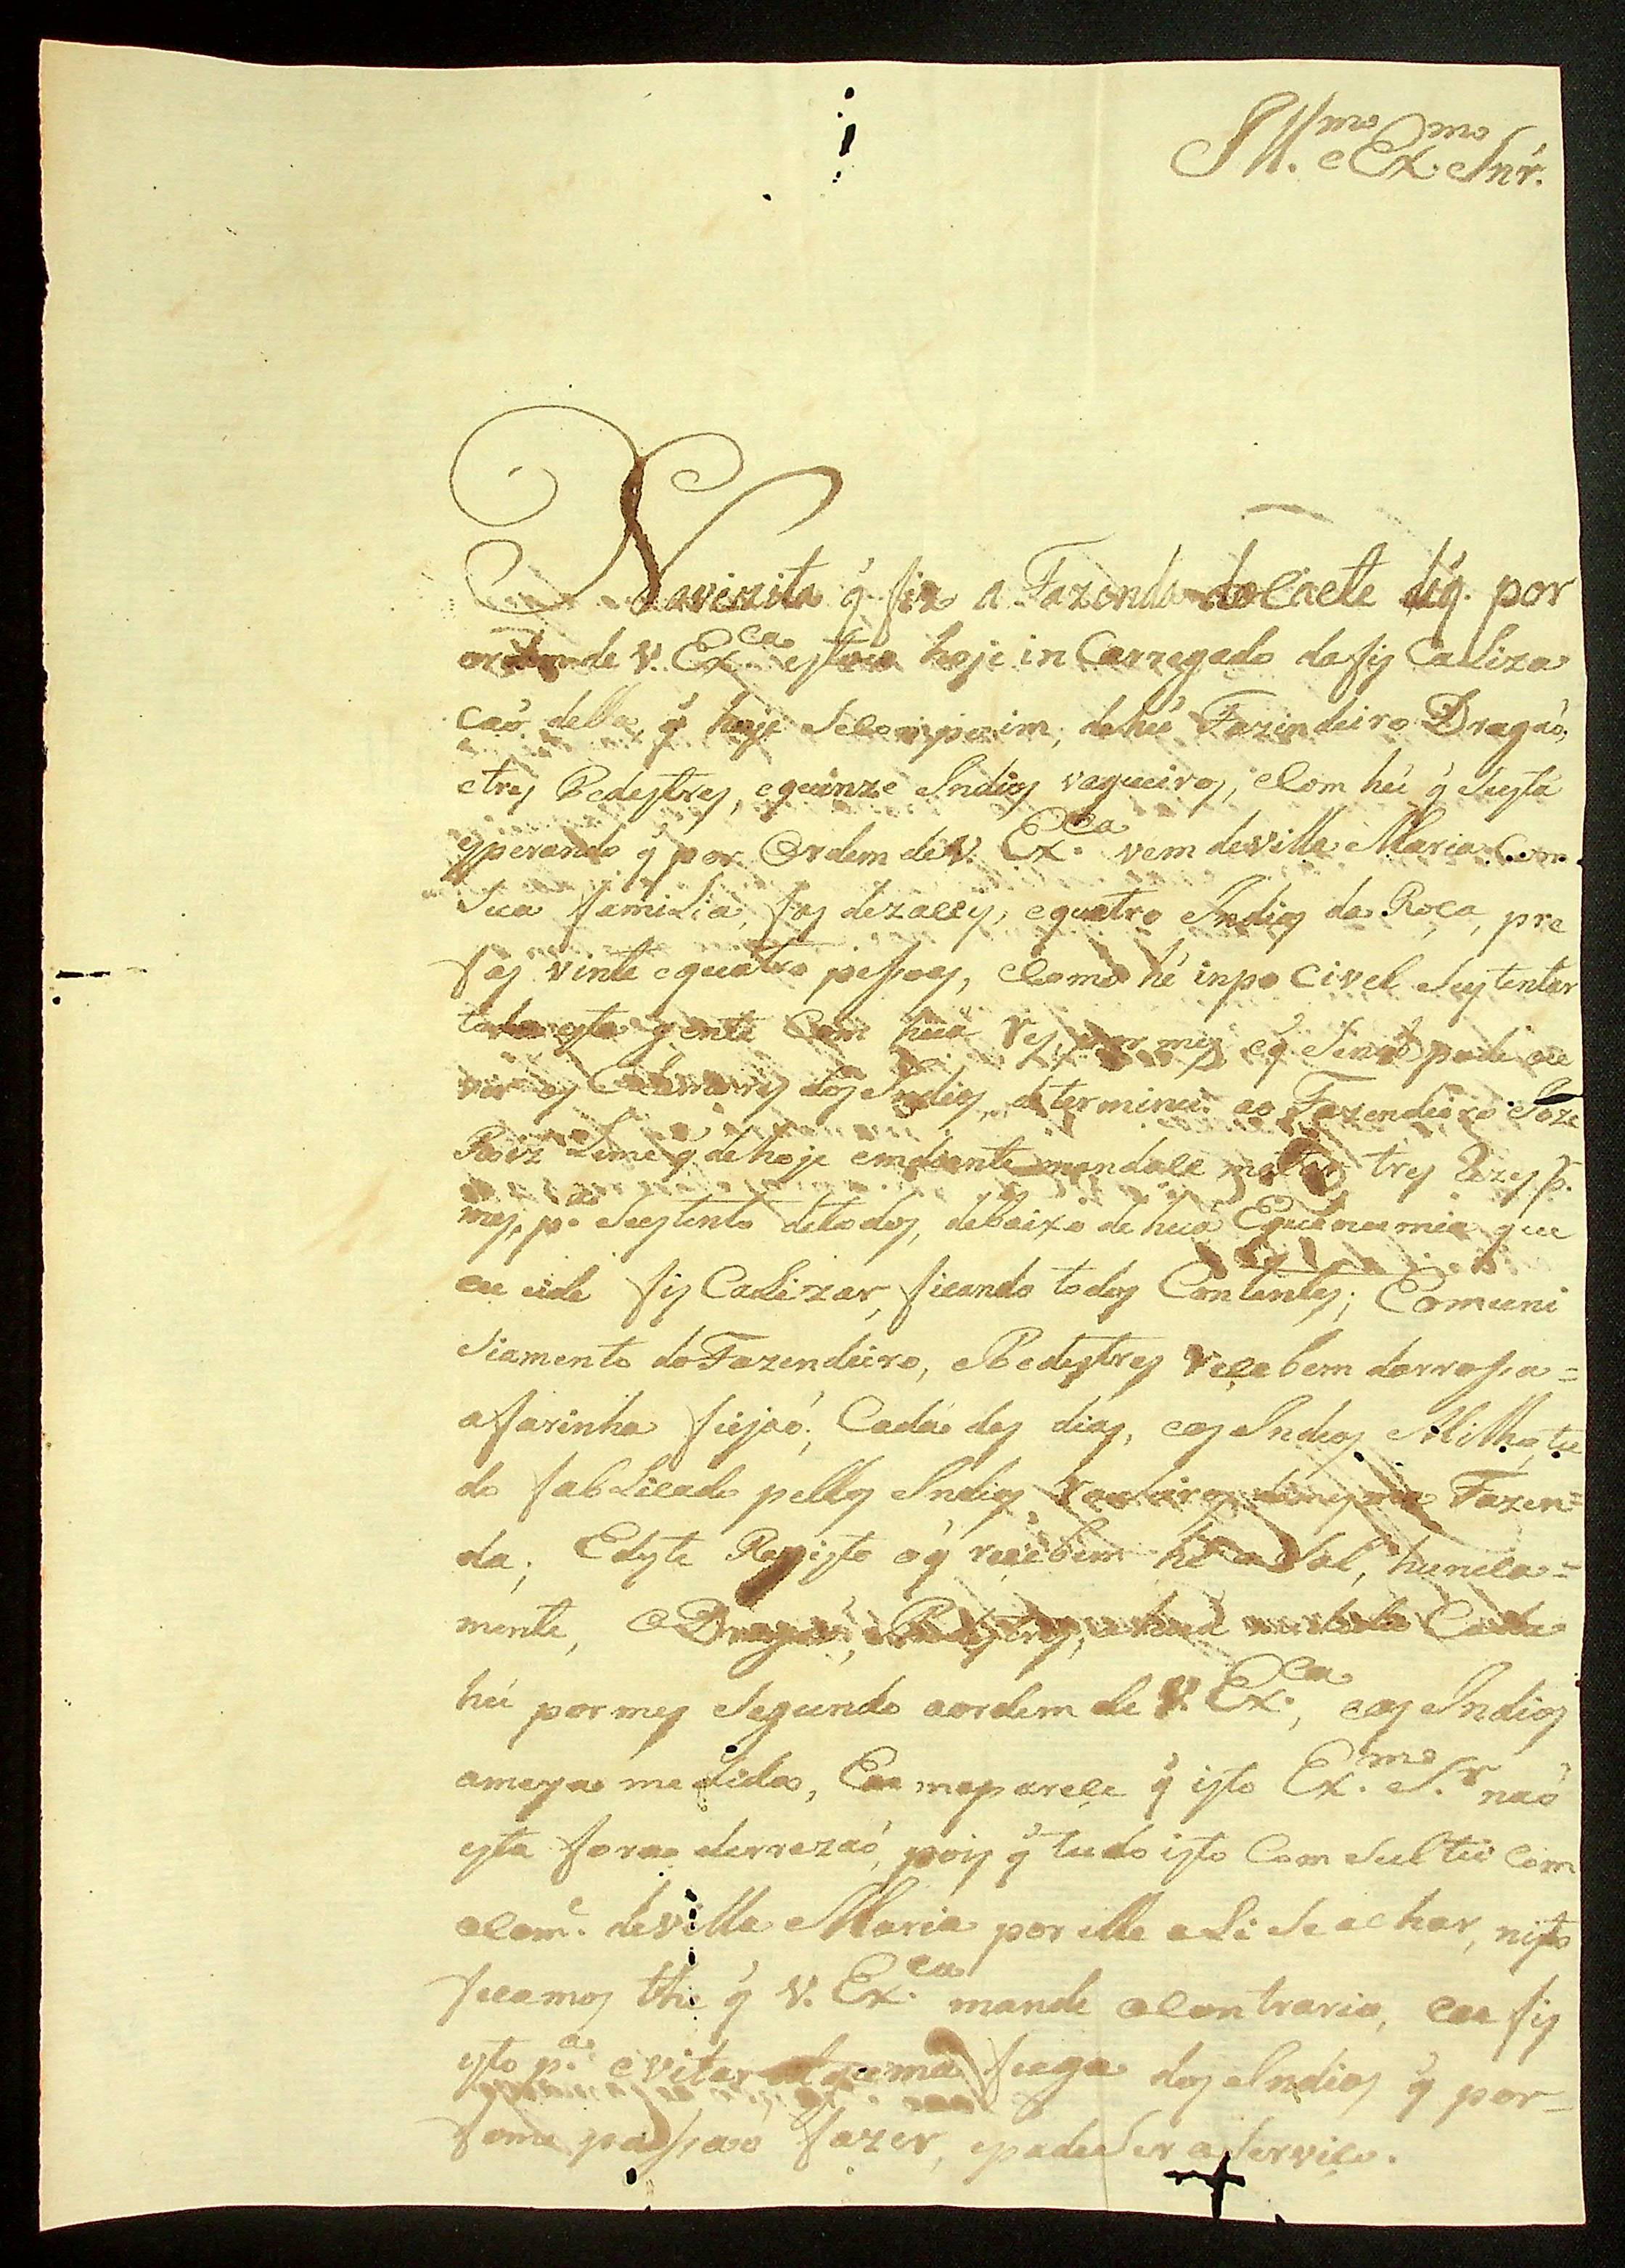 Ill.mo e Ex.mo Snr.
Navizita q̃ fiz a Fazenda do Caete diq. por
ordem de V. Ex.ca estou hoje in Carregado da fis Caliza
caõ della, q̃ hoje Se Compoim, de hũ Fazindeiro Dragaõ,
etres Pedestres, equinze Indios vaqueiros, Com hũ q̃ Sestá
esperando q̃ por Ordem de V. Ex.ca vem de Villa Maria Com
Sua familia, fas dezaceis, equatro Indios da Roça, pre
fas vinte equatro peſsoas, Como hé inpo civel Sustentar
toda esta gente Com hua Res por mes eq̃ Senaõ pode ou
vir os Clamores dos Indios, determinei ao Fazendeiro Joze
Roiz Lima q̃ de hoje emdiante mandace matar tres Rezes p.
mes, p.a Sustento de todos, debaixo de hua Equenumia que
eu eide fis Calizar, ficando todos Contentes; Comuni
Siamento do Fazendeiro, e Pedestres Recebem darroſsa =
a farinha fiejaõ, Cada des dias, eos Indios Milho, tu
do fablicado pellos Indios Roceiros dames ma Fazen=
da; Edeste Registo oq̃ recebem hé o Sal, hunica=
mente, o Dragaõ, e Pedestres, Cada
hũ por mes Segundo aordem de V. Ex.ca, eos Indios
ameya medida, Eu meparece q̃ isto Ex.mo S.r naõ
esta fora derrezaõ, pois q̃ tudo isto Com Sultei Com
oCom.e de Villa Maria por elle aLi Se achar, nisto
ficamos thé q̃ V. Ex.ca mande oContrario, eu fis
isto p.a evitar alguma fuga dos Indios q̃ por_
fome poſsaõ fazer, epadeSer oServiço.